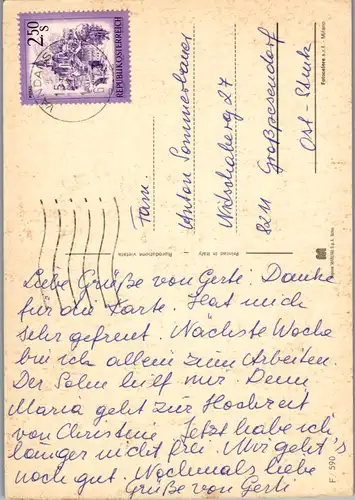 2.50
S
REPUBLIK ÖSTERREICH
Fam.
Anton Sommerbauer
Wolfsgruberg 27
8211 Großpesendorf
Ost-Stmk
Fotocelere s.r.l. - Milano
Riproduzione vietata
Printed in Italy
Liebe Grüße von Gerti. Danke
für die Karte. Hat mich
sehr gefreut. Nächste Woche
bin ich allein zum Arbeiten.
Der Sohn hilf mir. Denn
Maria geht zur Hochzeit
von Christine. Jetzt habe ich
länger nicht frei. Mir geht's
noch gut. Nochmals liebe
Grüße von Gerti
F. 590